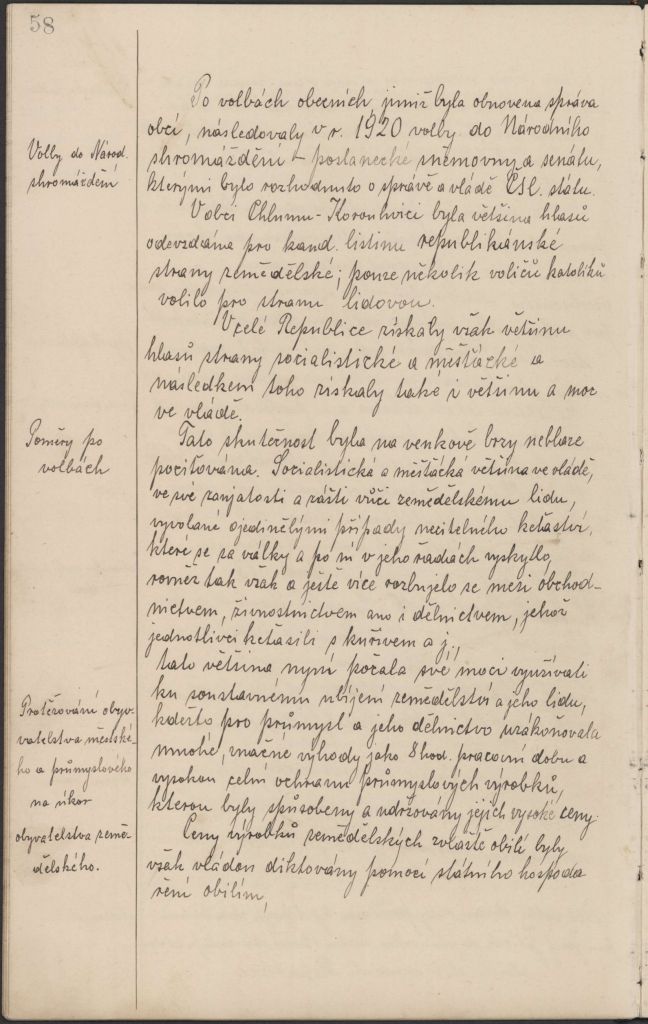 58
Po volbách obecních, jimiž byla obnovena správa
obcí, následovaly v r. 1920 volby do Národního
Volby do Národ.
shromáždění
shromáždění – poslanecké sněmovny a senátu,
kterými bylo rozhodnuto o správě a vládě Čsl. státu.
V obci Chlumu-Korouhvici byla většina hlasů
odevzdána pro kand. listinu republikánské
strany zemědělské; pouze několik voličů katolíků
volilo pro stranu lidovou.
V celé Republice získaly však většinu
hlasů strany socialistické a měšťácké a
následkem toho získaly také i většinu a moc
ve vládě.
Poměry po
volbách
Tato skutečnost byla na venkově brzy neblaze
pociťována. Socialistická a měšťácká většina ve vládě,
ve své zaujatosti a zášti vůči zemědělskému lidu,
vyvolané ojedinělými případy necitelného keťaství,
které se za války a po ní v jeho řadách vyskytlo,
rovněž tak však a ještě více rozbujelo se mezi obchod-
nictvem, živnostnictvem ano i dělnictvem, jehož
jednotlivci keťasili s kuřivem a j.,
tato většina nyní počala své moci využívati
ku soustavnému ubíjení zemědělství a jeho lidu,
Protěžování obyv-
vatelstva městské-
ho a průmyslového
na úkor
obyvatelstva země-
dělského.
kdežto pro průmysl a jeho dělnictvo uzákoňovala
mnohé, značné výhody jako 8 hod. pracovní dobu a
vysokou celní ochranu průmyslových výrobků,
kterou byly způsobeny a udržovány jejich vysoké ceny.
Ceny výrobků zemědělských zvláště obilí byly
však vládou diktovány pomocí státního hospoda
ření obilím,